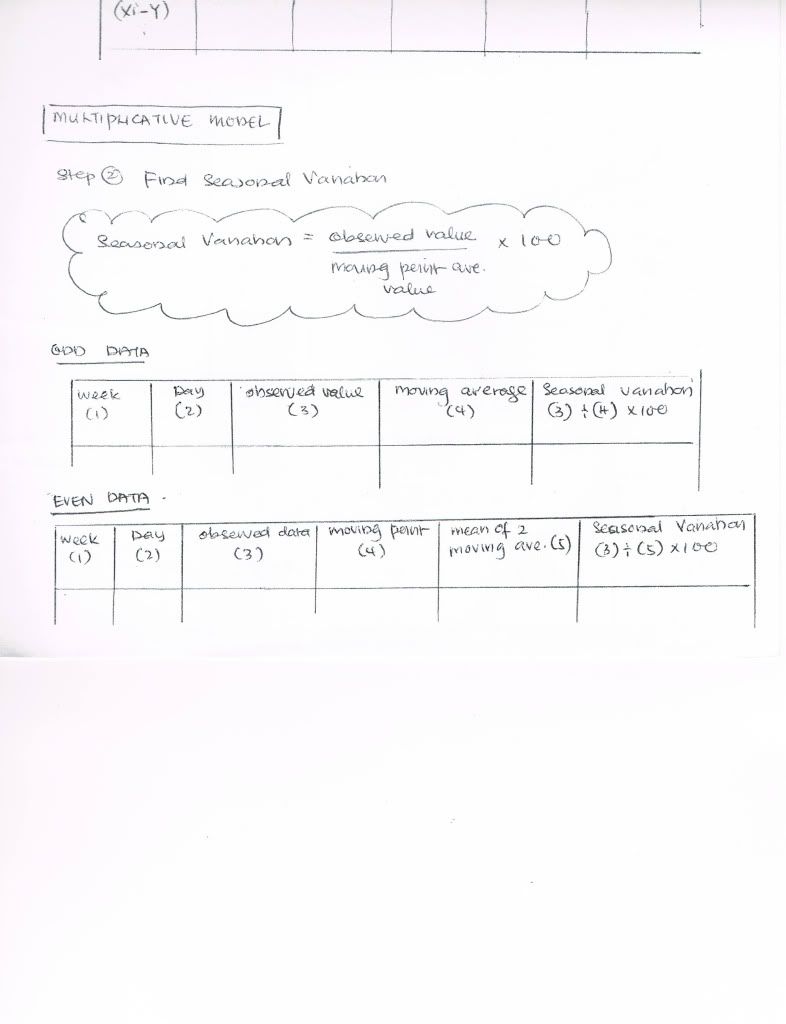 (Xi-Y)
MULTIPLICATIVE MODEL
Step ② Find Seasonal Variation
Seasonal Variation = observed value × 100
moving point ave.
value
ODD DATA
week Day observed value moving average Seasonal variation
(1) (2) (3) (4) (3) ÷ (4) × 100
EVEN DATA
week Day observed data moving point mean of 2 Seasonal Variation
(1) (2) (3) (4) moving ave. (5) (3) ÷ (5) × 100